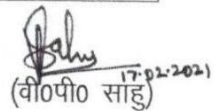 17.02.2021
(वी०पी० साहु)